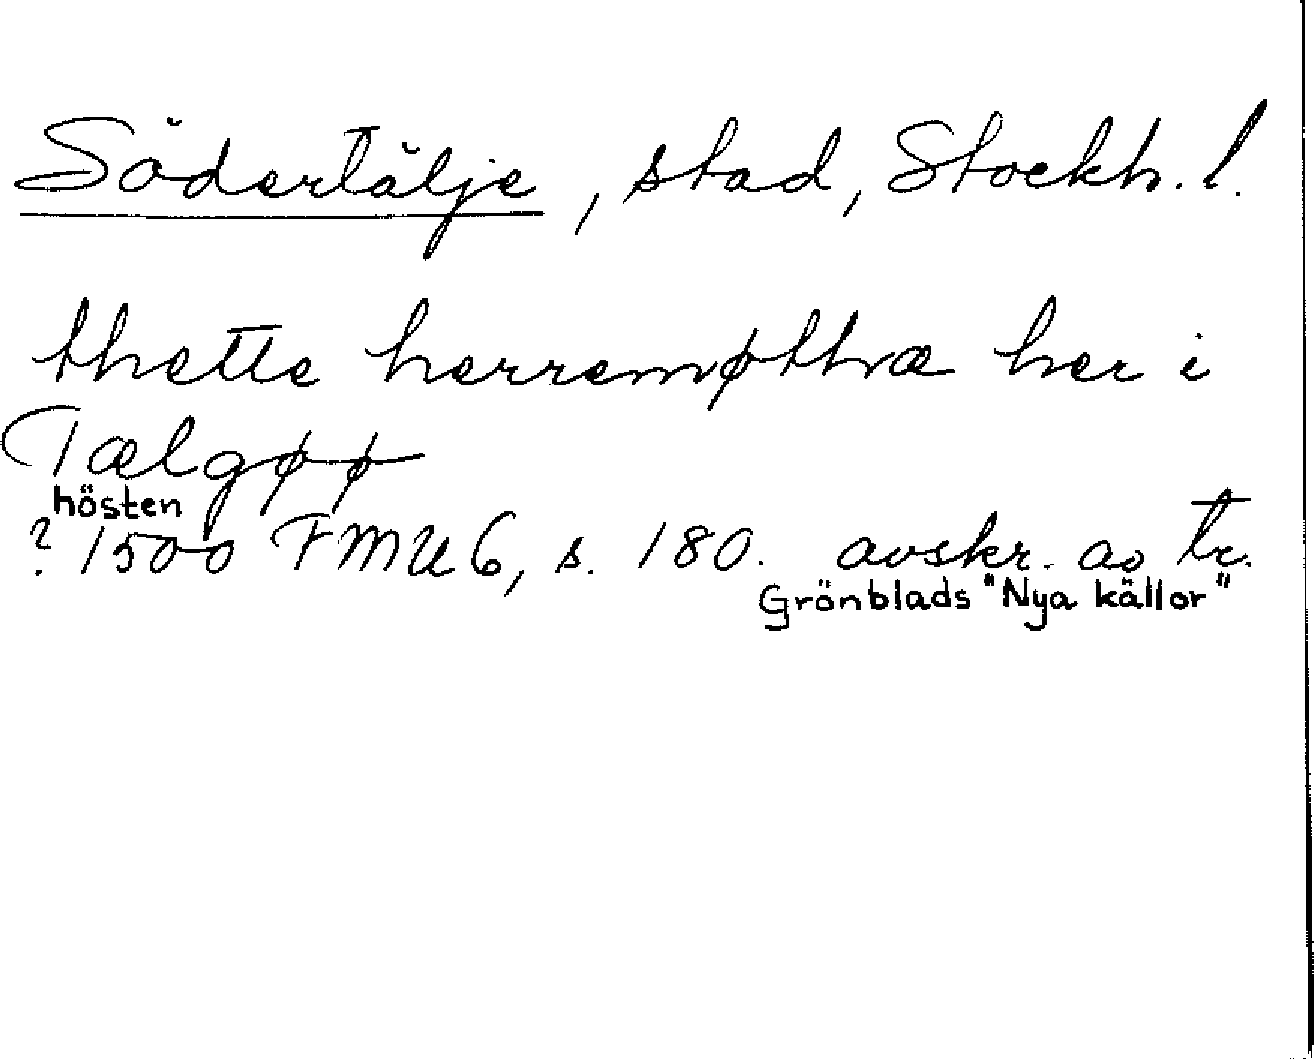 Södertälje, stad, Stockh. l.
thette herremøthræ her i
Tælgøø
hösten
? 1500 FMU 6, s. 180. avskr. av tr.
Grönblads "Nya källor"